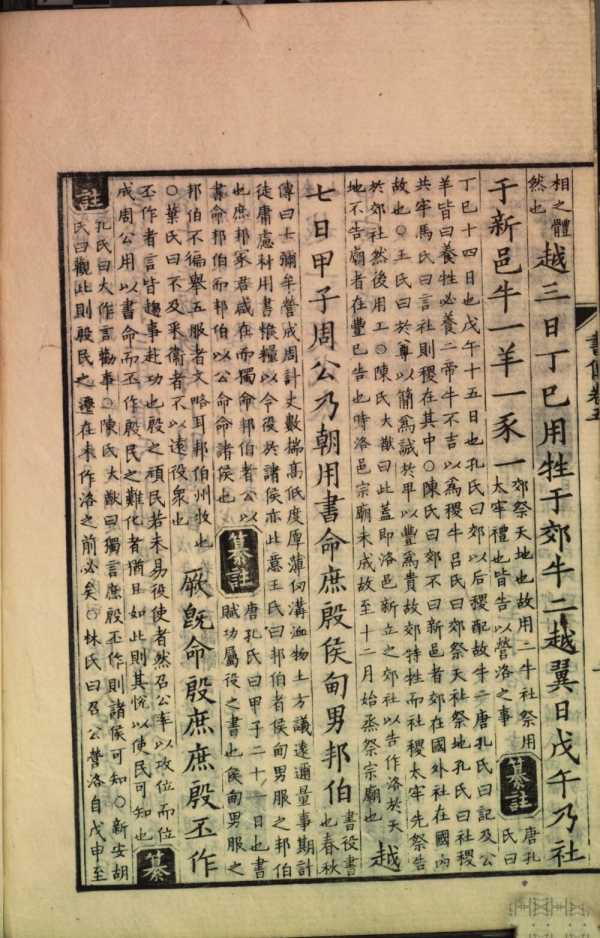 書傳卷五
相之體
然也
越三日丁巳用牲于郊牛二越翼日戊午乃社
于新邑牛一羊一豕一
郊祭天地也故用二牛社祭用
太牢禮也皆告以營洛之事
纂註
唐孔
氏曰
丁巳十四日也戊午十五日也孔氏曰郊以后稷配故牛二唐孔氏曰記及公
羊皆曰養牲必養二帝牛不吉以爲稷牛呂氏曰郊祭天社祭地孔氏曰社稷
共牢馬氏曰言社則稷在其中○陳氏曰郊不曰新邑者郊在國外社在國內
故也○王氏曰於尊以簡爲誠於卑以豐爲貴故郊特牲而社稷太牢先祭告
於郊社然後用工○陳氏大猷曰此蓋即洛邑新立之郊社以告作洛於天
地不告廟者在豐已告也時洛邑宗廟未成故至十二月始烝祭宗廟也
越
七日甲子周公乃朝用書命庶殷侯甸男邦伯
書役書
也春秋
傳曰士彌牟營成周計丈數揣高低度厚薄仞溝洫物土方議遠邇量事期計
徒庸慮材用書餱糧以令役於諸侯亦此意王氏曰邦伯者侯甸男服之邦伯
也庶邦冢君咸在而獨命邦伯者公以
書命邦伯而邦伯以公命命諸侯也
纂註
唐孔氏曰甲子二十一日也書
賦功屬役之書也侯甸男服之
邦伯不徧舉五服者文略耳邦伯州牧也
○葉氏曰不及采衛者不以遠役衆也
厥旣命殷庶庶殷丕作
丕作者言皆趨事赴功也殷之頑民若未易役使者然召公率以攻位而位
成周公用以書命而丕作殷民之難化者猶且如此則其悅以使民可知也
纂
註
孔氏曰大作言勸事○陳氏大猷曰獨言庶殷丕作則諸侯可知○新安胡
氏曰觀此則殷民之遷在未作洛之前必矣○林氏曰召公營洛自戊申至